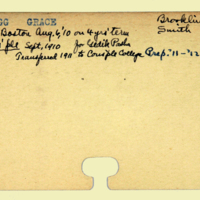 GG GRACE
Brooklin
Smith
Boston Aug. 6, '10 on 4 yrs' term
Sept. 1910 for Gedik Pasha
Transferred 1911 to Consple College Prep. '11-'12